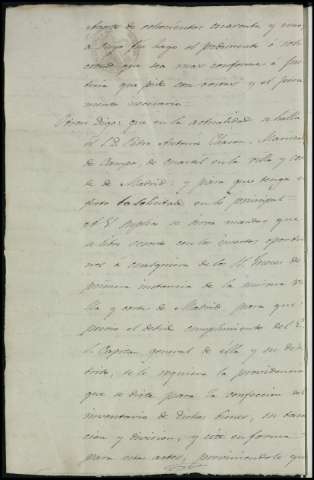 Agosto de ochocientos cuarenta y uno,
a cuyo fin hago el pedimento ó soli-
citud que sea mas conforme á jus-
ticia que pido con costas y el jura-
mento necesario.
Otrosi Digo: que en la actualidad se halla
el S. D. Pedro Antonio Mariscal
de Campo, de cuartel en la villa y cor-
te de Madrid; y para que tenga e-
fecto lo solicitado en lo principal
A V. S. Suplico se sirva mandar que
se libre exorto con los insertos oportu-
nos á cualquiera de los SS. Jueces de
primera instancia de la misma vi-
lla y corte de Madrid para que
previo el debido cumplimiento del E.
S. Capitan general de ella y su dis-
trito, se le requiera la providencia
que se dicte para la confeccion del
inventario de dichos bienes, su tasa-
cion y division, y cite en forma
para estos actos, previniendole que